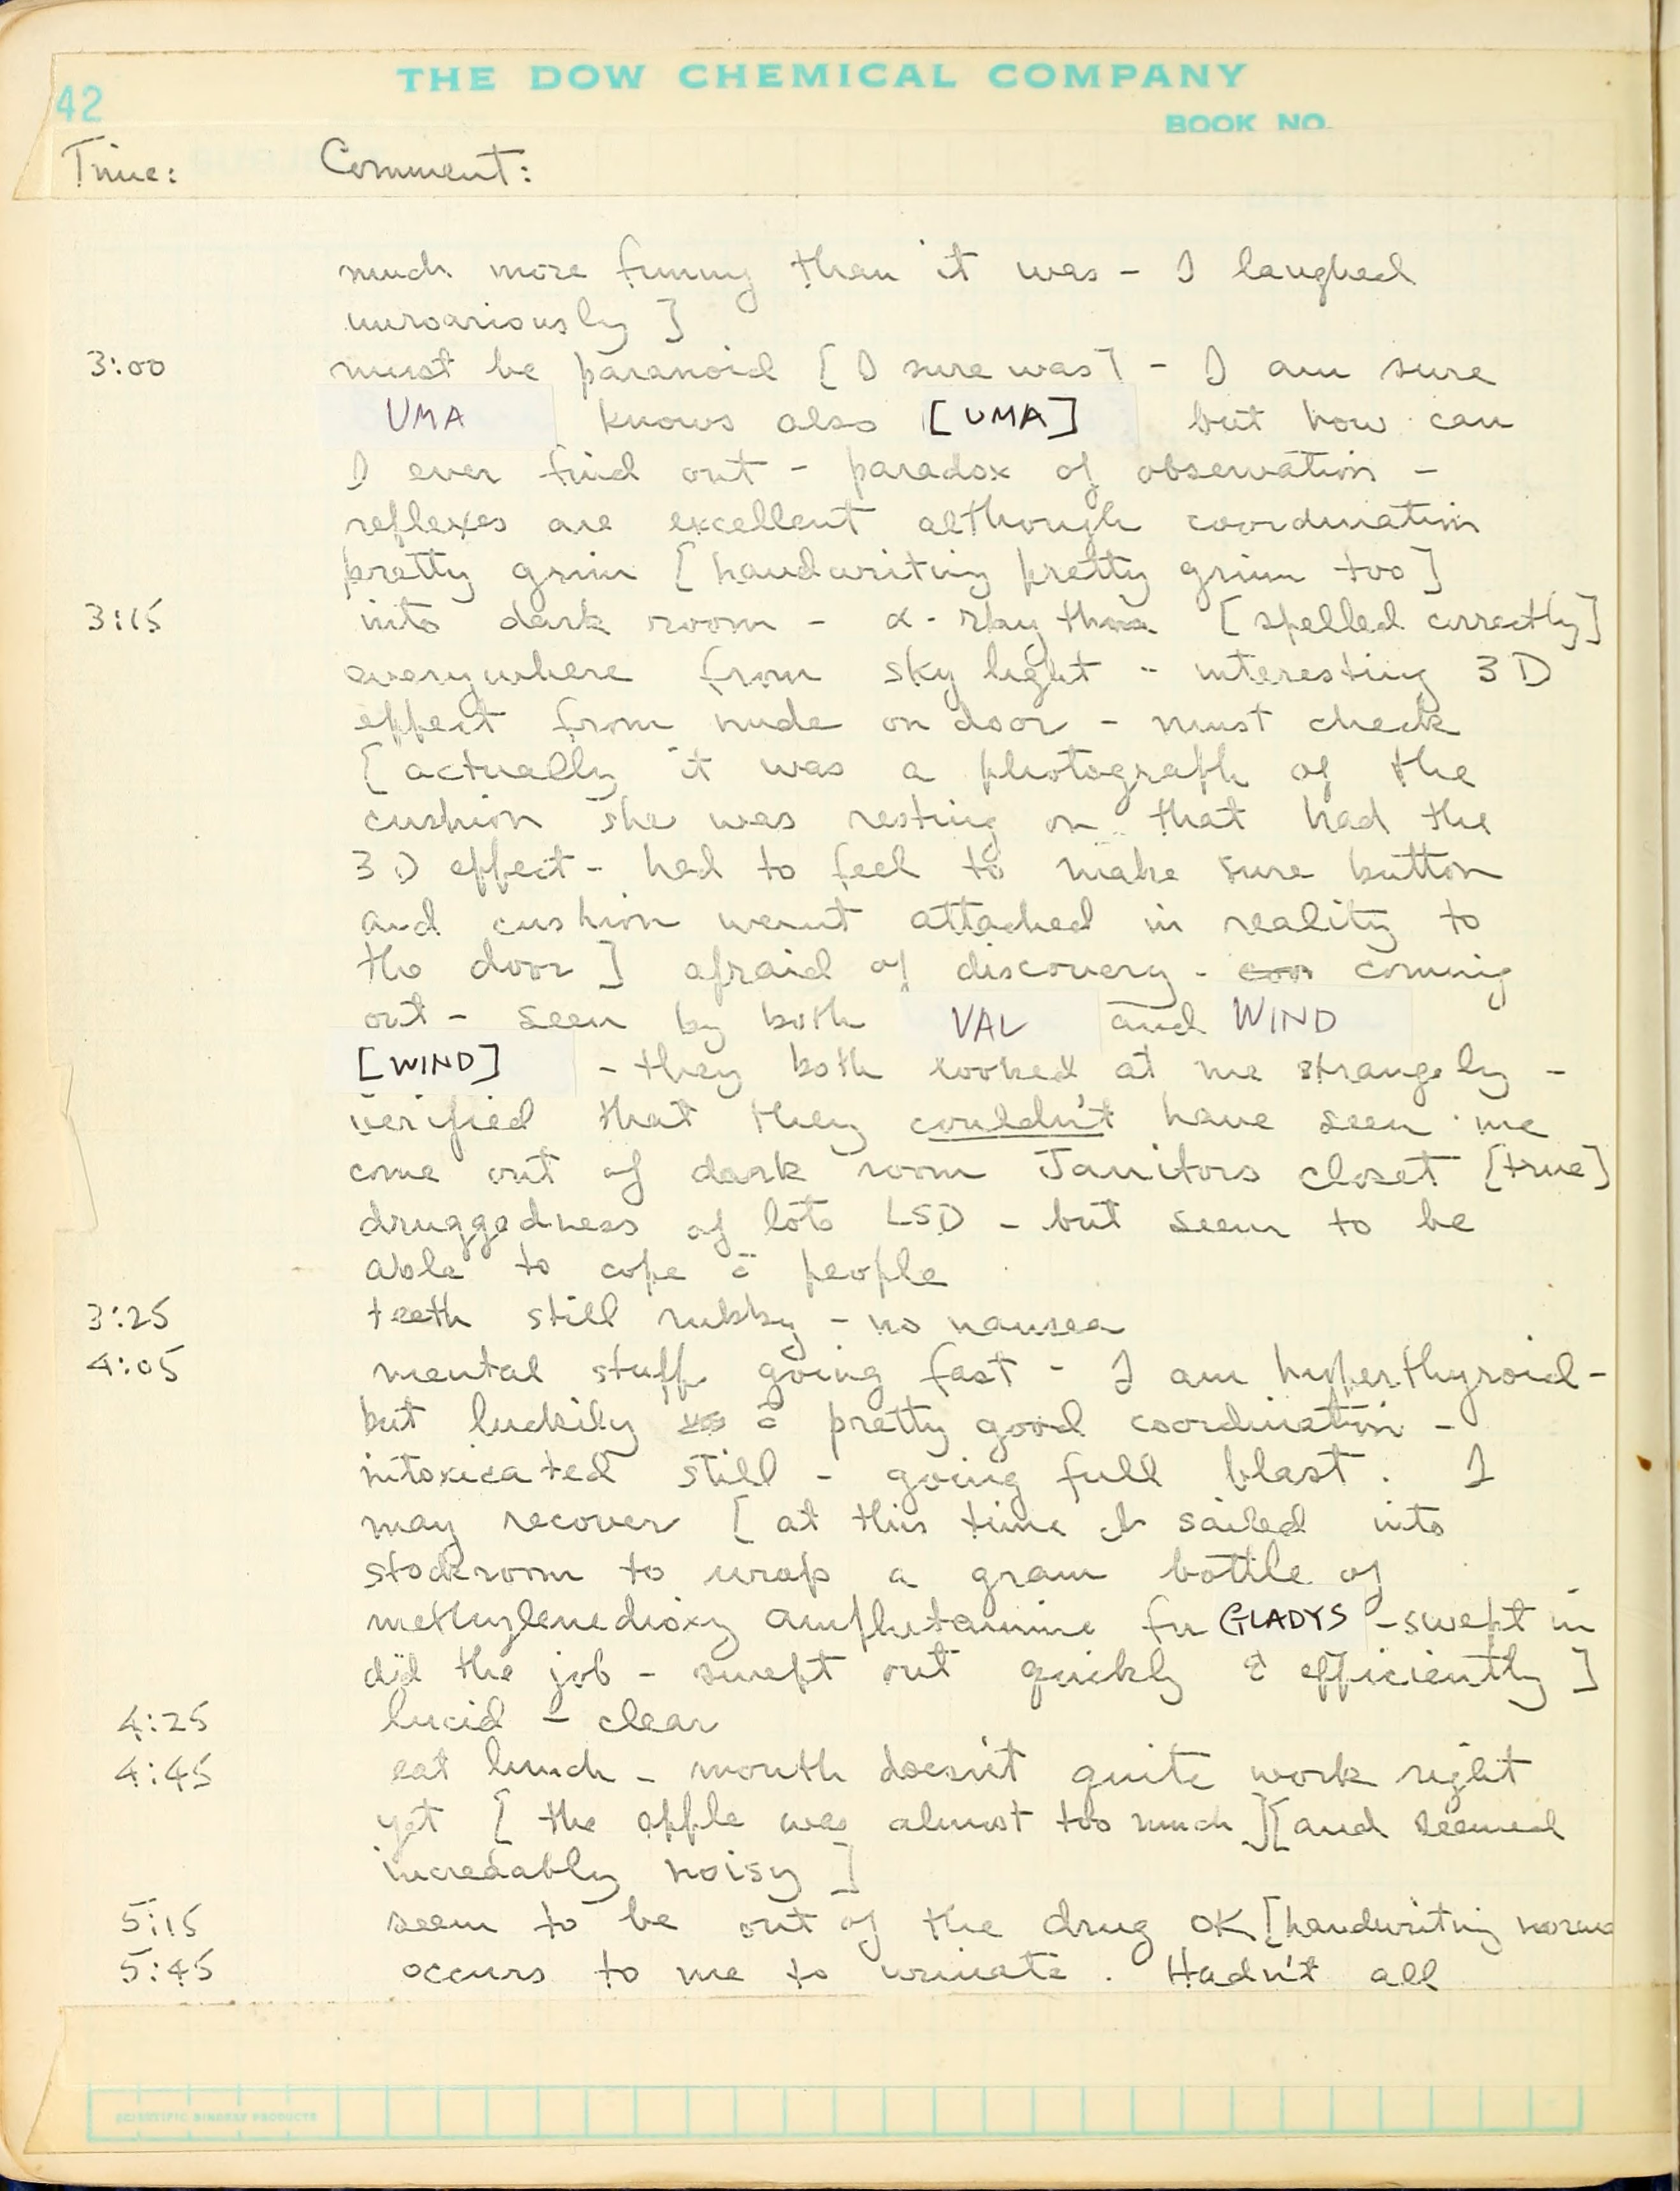 42
THE DOW CHEMICAL COMPANY
BOOK NO.
Time: Comment:
much more funny than it was - I laughed
unroariously ]
3:00 must be paranoid [ I sure was ] - I am sure
UMA knows also [UMA] but how can
I ever find out - paradox of observation -
reflexes are excellent although coordination
pretty grim [ handwriting pretty grim too ]
3:15 into dark room - α - rhythms [ spelled correctly ]
everywhere from sky light - interesting 3D
effect from nude on door - must check
[ actually it was a photograph of the
cushion she was resting on that had the
3D effect - had to feel to make sure button
and cushion weren't attached in reality to
the door ] afraid of discovery - coming
out - seen by both VAL and WIND
[WIND] - they both looked at me strangely -
verified that they couldn't have seen me
come out of dark room Janitors closet [true]
druggedness of lots LSD - but seem to be
able to cope c̄ people
3:25 teeth still rubby - no nausea
4:05 mental stuff going fast - I am hyperthyroid -
but luckily c̄ pretty good coordination -
intoxicated still - going full blast. I
may recover [ at this time I sailed into
stockroom to wrap a gram bottle of
methylenedioxy amphetamine for GLADYS - swept in
did the job - swept out quickly & efficiently ]
4:25 lucid - clear
4:45 eat lunch - mouth doesn't quite work right
yet [ the apple was almost too much ][ and seemed
incredably noisy ]
5:15 seem to be out of the drug OK [handwriting
5:45 occurs to me to urinate. Hadn't all
SCIENTIFIC BINDERY PRODUCTS